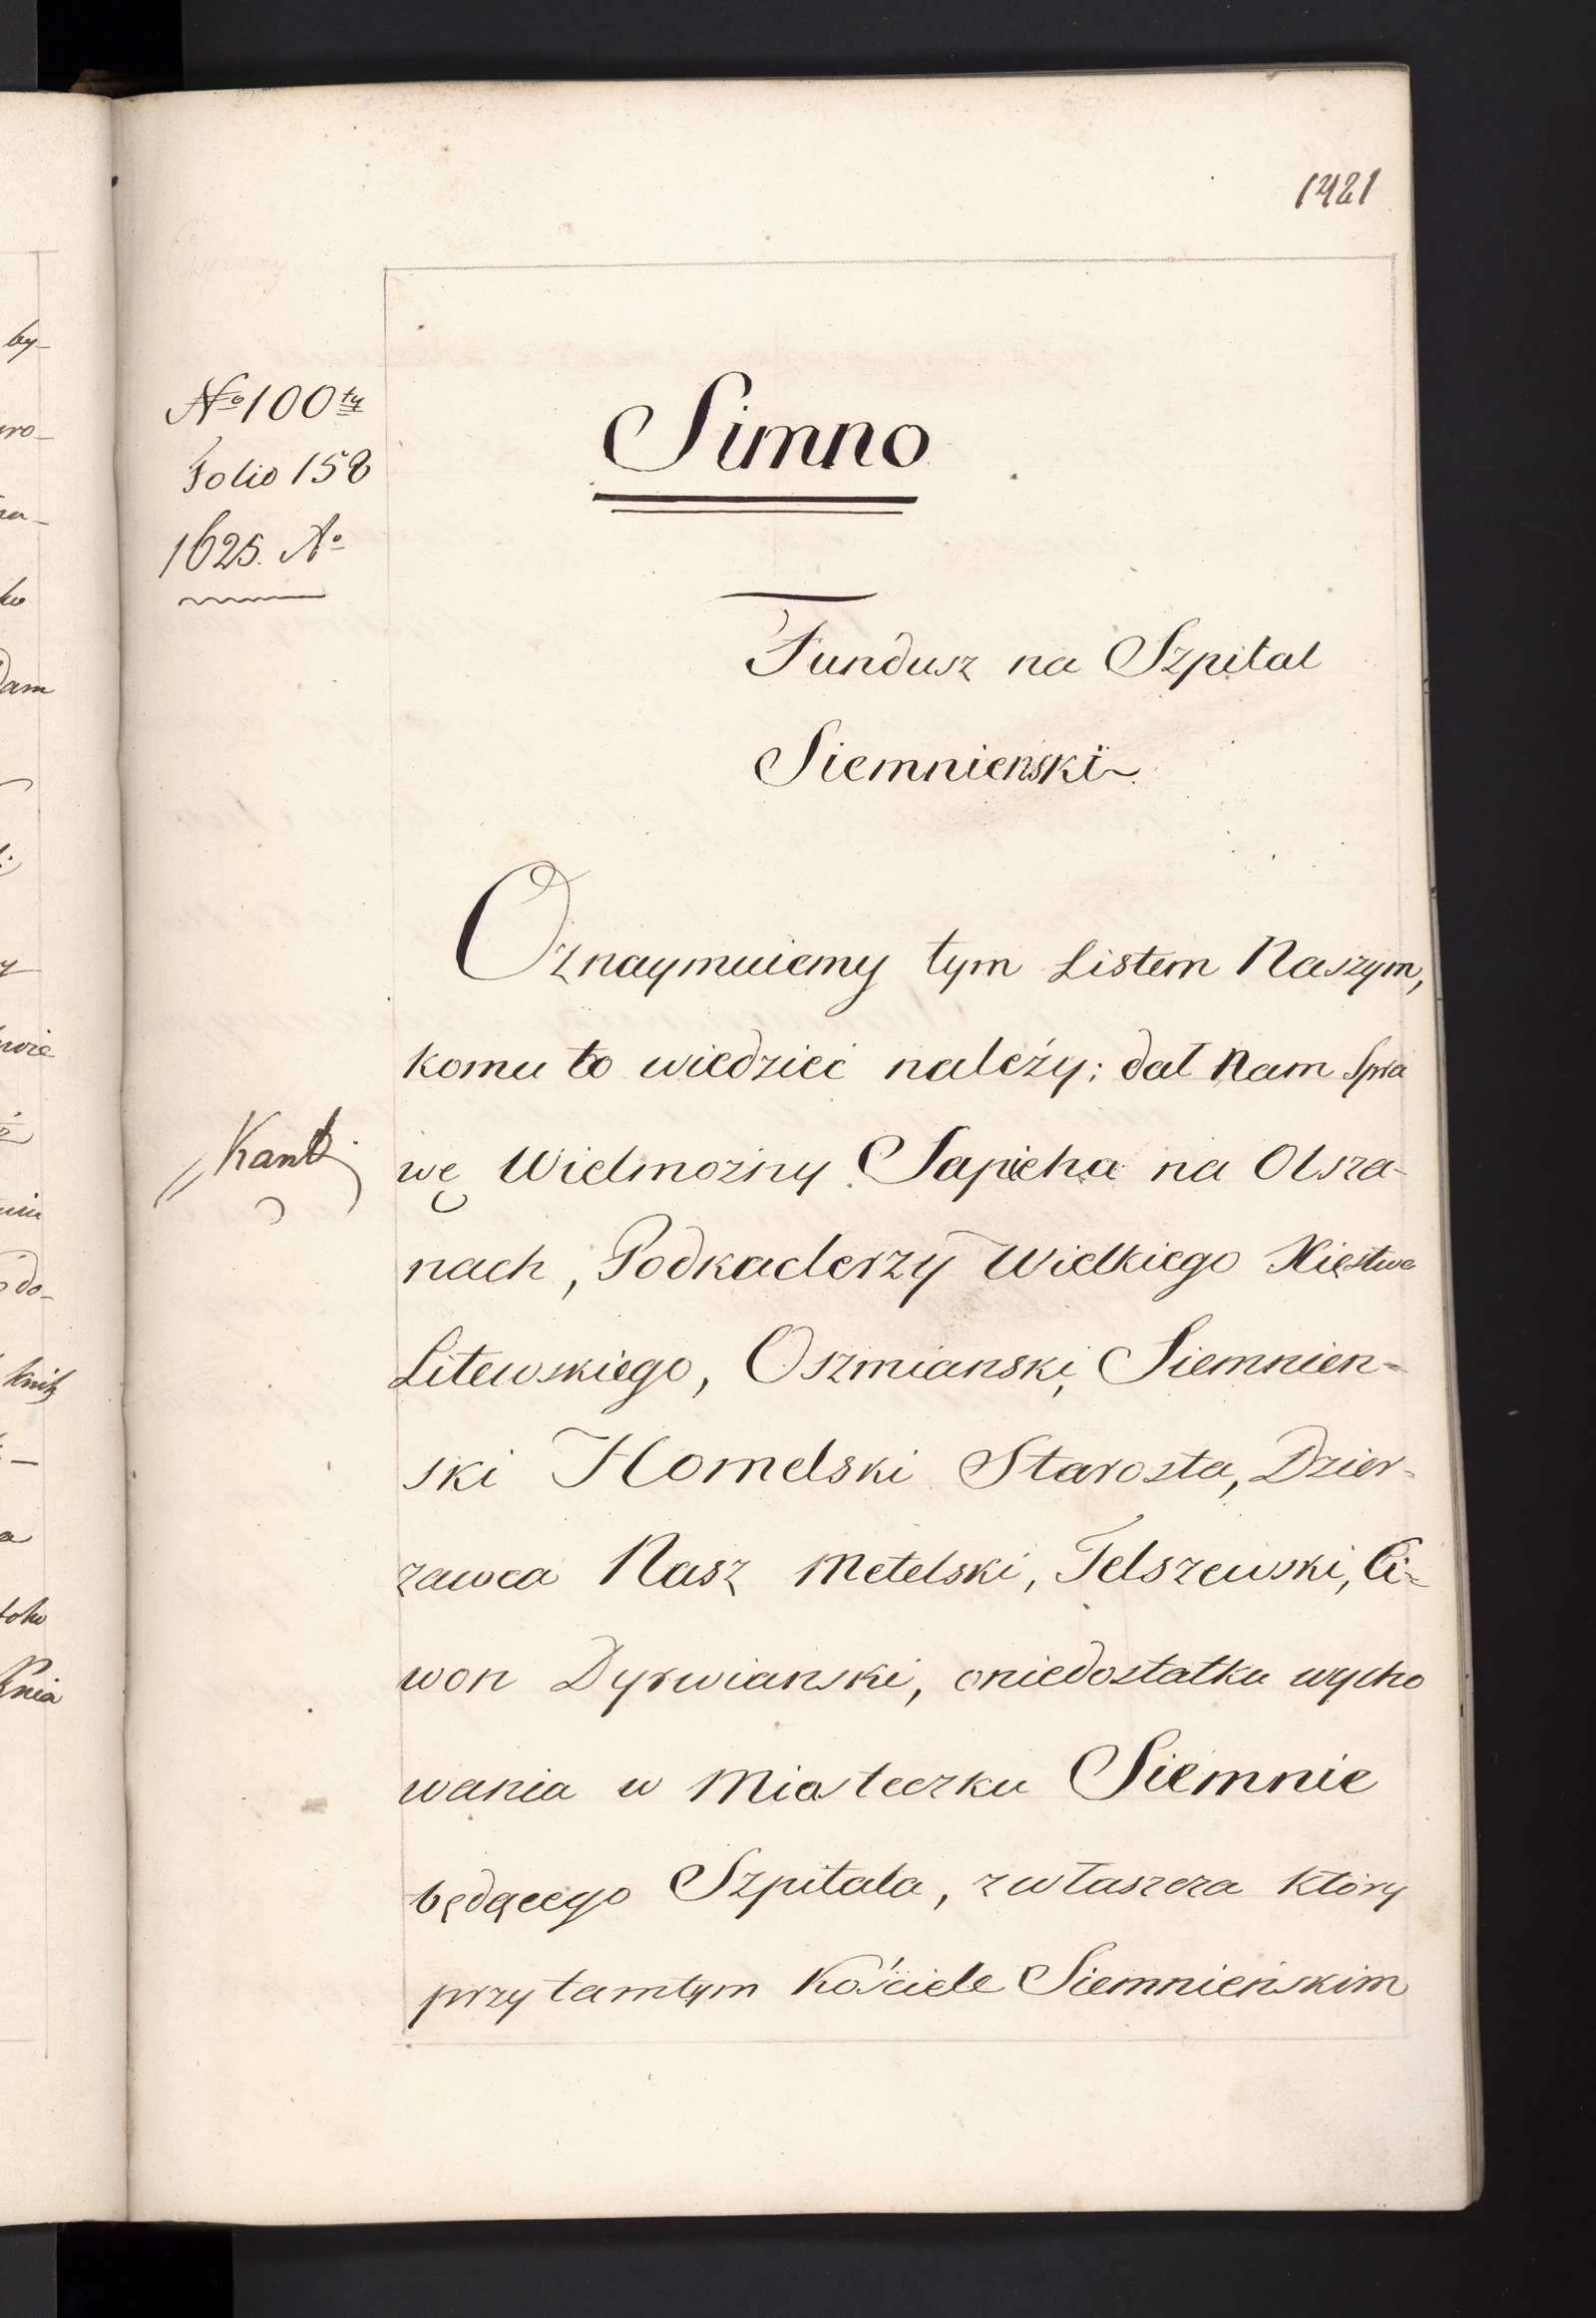 1421
No 100ty
Folio 158
1625. Ao
Simno
Fundusz na Szpital
Siemnienski
Oznaymuiemy tym Listem Naszym,
komu to wiedzieć należy; dał Nam Spra
wę Wielmożny Sapieha na Olsza-
nach, Podkaclerzy Wielkiego Xięstwa
Litewskiego, Oszmianski, Siemnien-
ski Homelski Starosta, Dzier-
zawca Nasz Metelski, Telszewski, Ci-
won Dyrwianski, oniedostatku wycho
wania w Miasteczku Siemnie
będącego Szpitala, zwłaszcza który
przy tamtym Kościele Siemnieńskim
by-
ro-
ko
Dam
do-